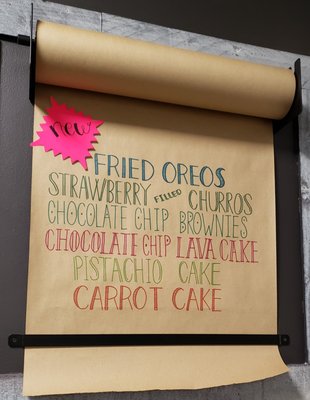 new
FRIED OREOS
STRAWBERRY FILLED CHURROS
CHOCOLATE CHIP BROWNIES
CHOCOLATE CHIP LAVA CAKE
PISTACHIO CAKE
CARROT CAKE